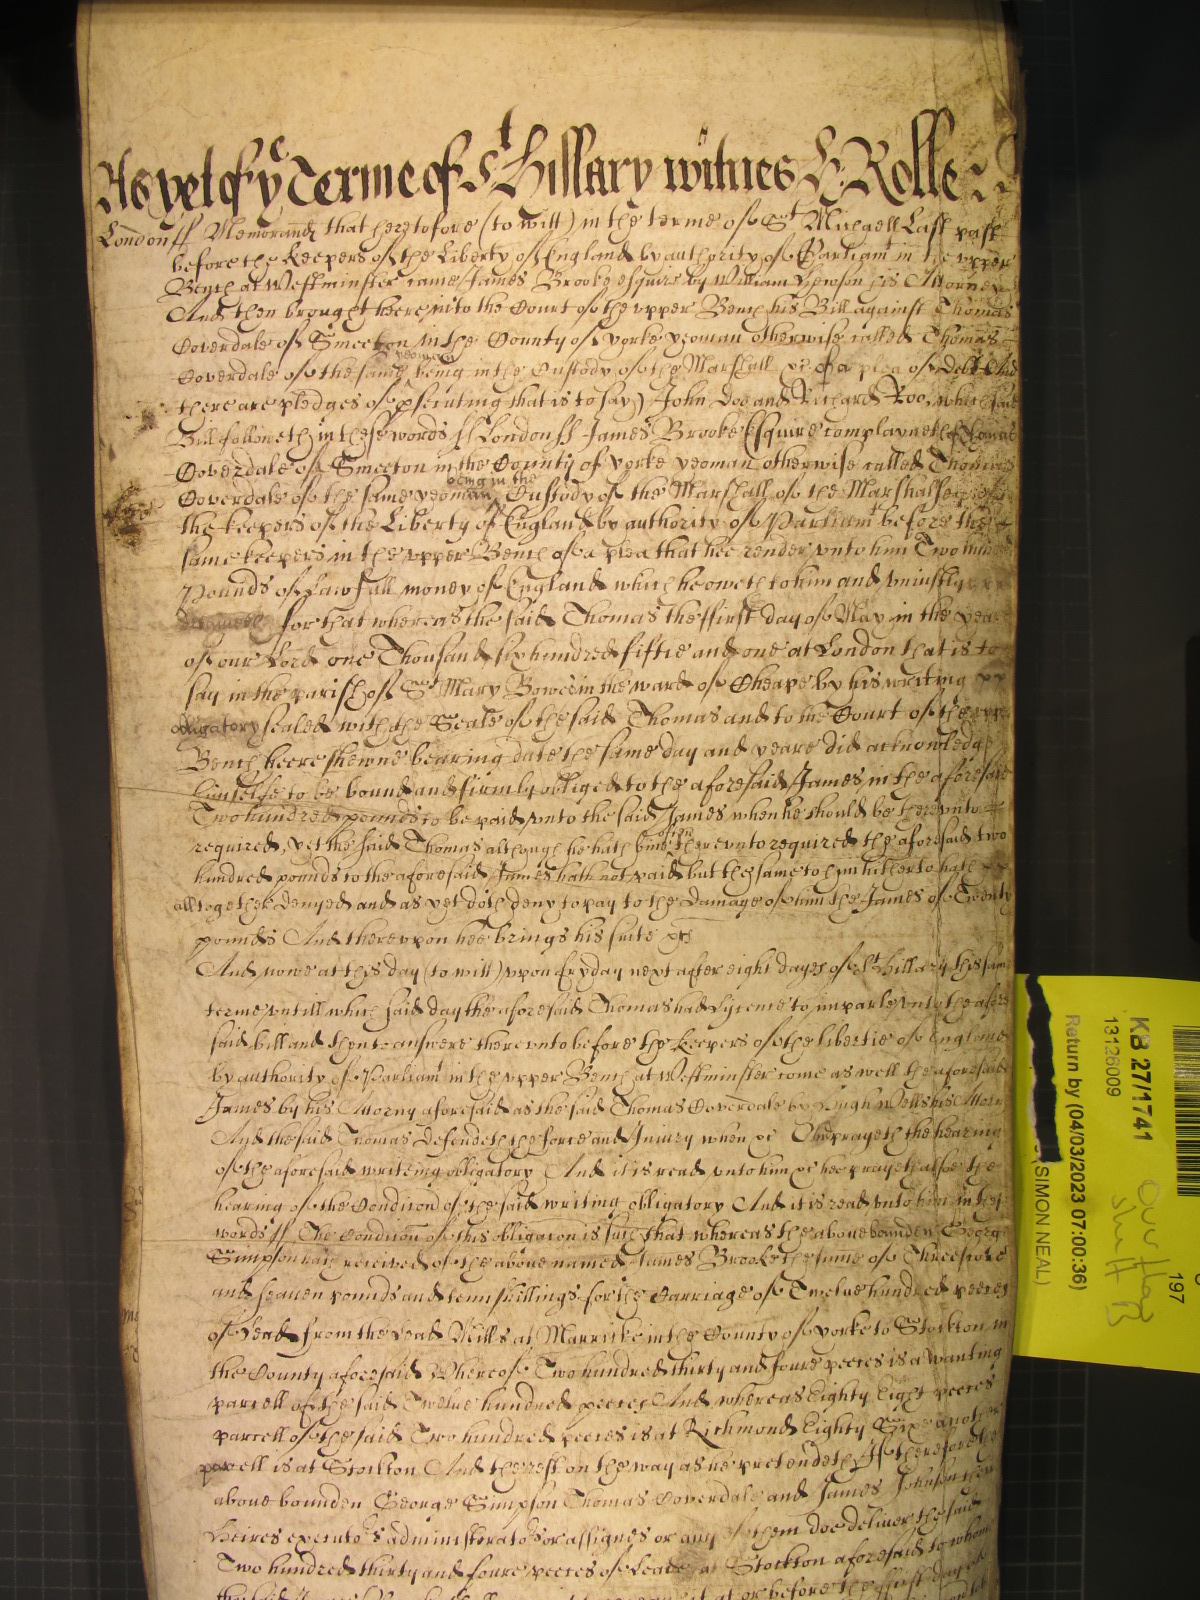 As yet of ye Terme of St Hillary witnes H Rolle
London ss Memorand that heretofore (to witt) in the terme of St Michaell Last past
before the keepers of the Liberty of England by authority of Parliamt in the vpper
Bench at Westminster came James Brooke esquire by William his Attorney
And then brought heere into the Court of the vpper Bench his Bill against Thomas
Coverdale of Smeeton in the County of yorke yeoman otherwise called Thomas
Coverdale of the same yeoman being in the Custody of the Marshall &c of a plea of Debt And
there are pledges of psecuting that is to say) John Doe and Richard Roo, which said
Bill followeth in these words ss London ss James Brooke Esquire complayneth of Thomas
Coverdale of Smeeton in the County of yorke yeoman otherwise called Thomas
Coverdale of the same yeoman being in the Custody of the Marshall of the Marshalsea
the keepers of the Liberty of England by authority of Parliamt before the
same keepers in the vpper Bench of a plea that hee render vnto him Two hundred
Pounds of Lawfull money of England which he oweth to him and vniustly
for that whereas the said Thomas the ffirst day of May in the yeare
of our Lord one Thousand six hundred fiftie and one at London that is to
say in the parish of St Mary Bowe in the ward of Cheape by his writing
obligatory sealed with the Seale of the said Thomas and to the Court of the vpper
Bench heere shewne bearing date the same day and yeare did acknowledge
himselfe to be bound and firmly obliged to the aforesaid James in the aforesaid
Two hundred pounds to be paid vnto the said James when he should be therevnto
required, yet the said Thomas although he hath bine often therevnto required the aforesaid two
hundred pounds to the aforesaid James hath not paid but the same to him hitherto hath
alltogether denyed and as yet doth deny to pay to the Damage of him the James of Twenty
pounds And therevpon hee brings his suite &c
And nowe at this day (to witt) vpon fryday next after eight dayes of St Hillary this same
terme vntill which said day the aforesaid Thomas had Lycence to imparle vnto the afore
said bill and then to answere therevnto before the keepers of the libertie of England
by authority of Parliamt in the vpper Bench at Westminster come as well the aforesaid
James by his Attorny aforesaid as the said Thomas Coverdale by Hugh Wells his Attorn
And the said Thomas Defendeth the force and Iniury when &c And prayeth the hearing
of the aforesaid writeing obligatory And it is read vnto him &c hee prayeth alsoe the
hearing of the Condicon of the said writing obligatory And it is read vnto him in these
words ss The Condicon of this obligacon is such that whereas the aboue bounden George
Simpson hath received of the aboue named James Brooke the summe of Threescore
and seauen pounds and tenn shillings for the Carriage of Twelue hundred peeces
of Lead from the Lead Mills at Marricke in the County of yorke to Stockton in
the County aforesaid Whereof Two hundred thirty and foure peeces is a wanting
parcell of the said Twelue hundred peeces And whereas Eighty Eight peeces
parcell of the said Two hundred peeces is at Richmond Eighty Six another
parcell is at Stockton And the rest on the way as he pretendeth If therefore the
aboue bounden George Simpson Thomas Coverdale and James Johnson their
Heires executors administerators or assignes or any of them doe deliver the said
Two hundred thirty and foure peeces of Lead at Stockton aforesaid to whom
at or before the ffirst day of
KB 27/1741
13126009
Return by (04/03/2023 07:00:36)
(SIMON NEAL)
197